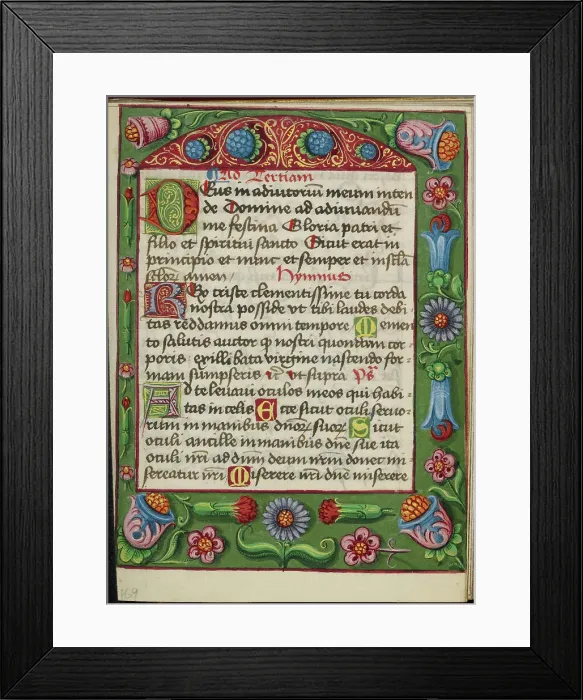 Ad Tertiam
Deus in adiutoriũ meum inten
de Domine ad adiuuandũ
me festina Gloria patri et
filio et spiritui sancto Sicut erat in
principio et nunc et semper et in scla
sclor̃ amen / Hymnus
Rex criste clementissime tu corda
nostra posside vt tibi laudes debi-
tas reddamus omni tempore Memen
to salutis auctor q nostri quondam cor
poris ex illibata virgine nascendo for-
mam sumpseris vt supra Ps
Ad te leuaui oculos meos qui habi-
tas in celis Ecce sicut oculi seruo-
rum in manibus dnor̃ suor̃ Sicut
oculi ancille in manibus dñe sue ita
oculi nr̃i ad dnm deum nr̃m donec mi-
sereatur nr̃i Miserere nr̃i dñe miserere
169